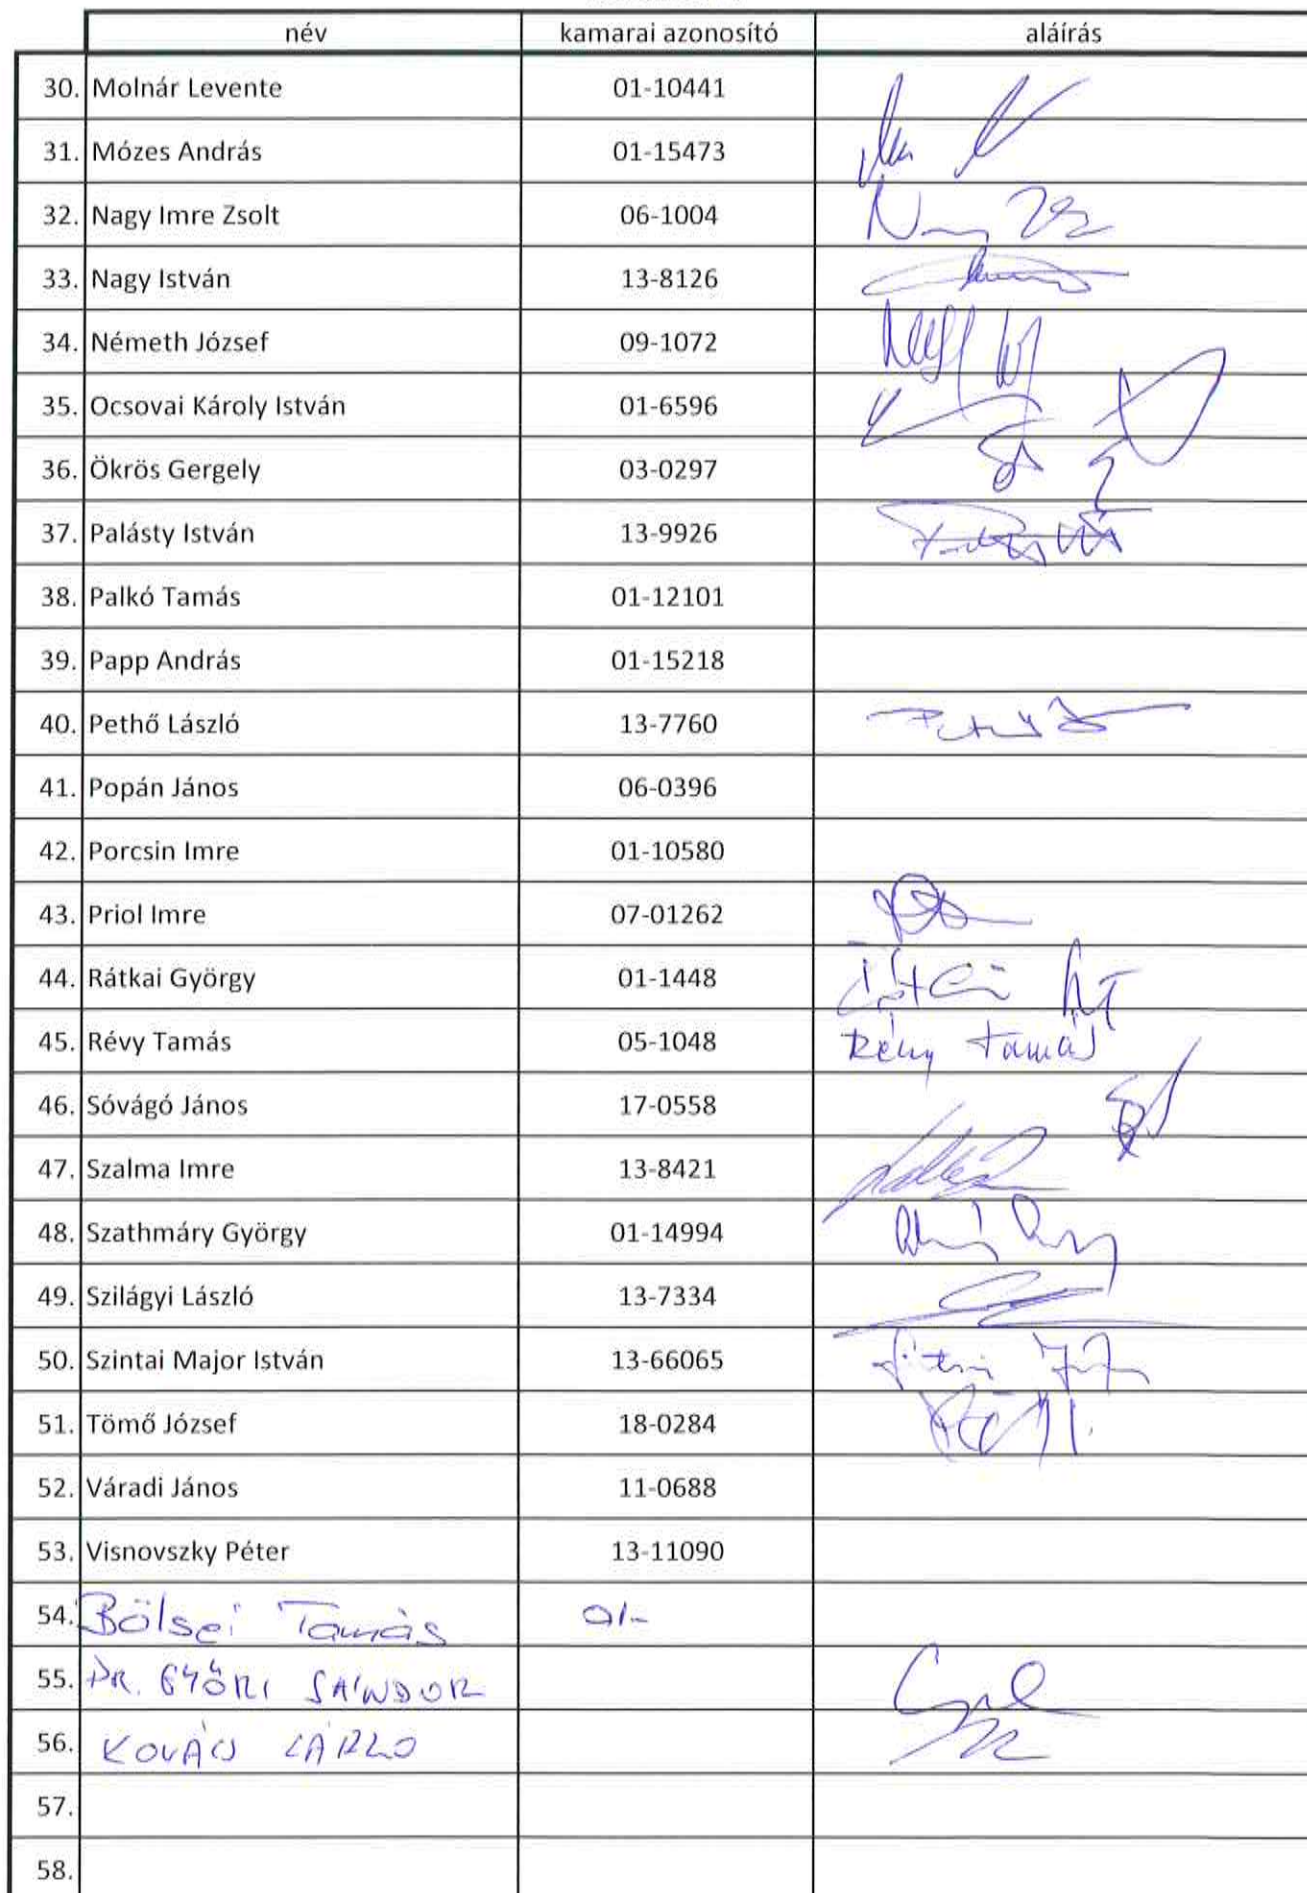 név kamarai azonosító aláírás
30. Molnár Levente 01-10441
31. Mózes András 01-15473
32. Nagy Imre Zsolt 06-1004
33. Nagy István 13-8126
34. Németh József 09-1072
35. Ocsovai Károly István 01-6596
36. Ökrös Gergely 03-0297
37. Palásty István 13-9926
38. Palkó Tamás 01-12101
39. Papp András 01-15218
40. Pethő László 13-7760
41. Popán János 06-0396
42. Porcsin Imre 01-10580
43. Priol Imre 07-01262
44. Rátkai György 01-1448
45. Révy Tamás 05-1048 Révy Tamás
46. Sóvágó János 17-0558
47. Szalma Imre 13-8421
48. Szathmáry György 01-14994
49. Szilágyi László 13-7334
50. Szintai Major István 13-66065
51. Tömő József 18-0284
52. Váradi János 11-0688
53. Visnovszky Péter 13-11090
54. Bölsei Tamás 01-
55. DR. GYŐRI SÁNDOR
56. KOVÁCS LÁSZLÓ
57.
58.